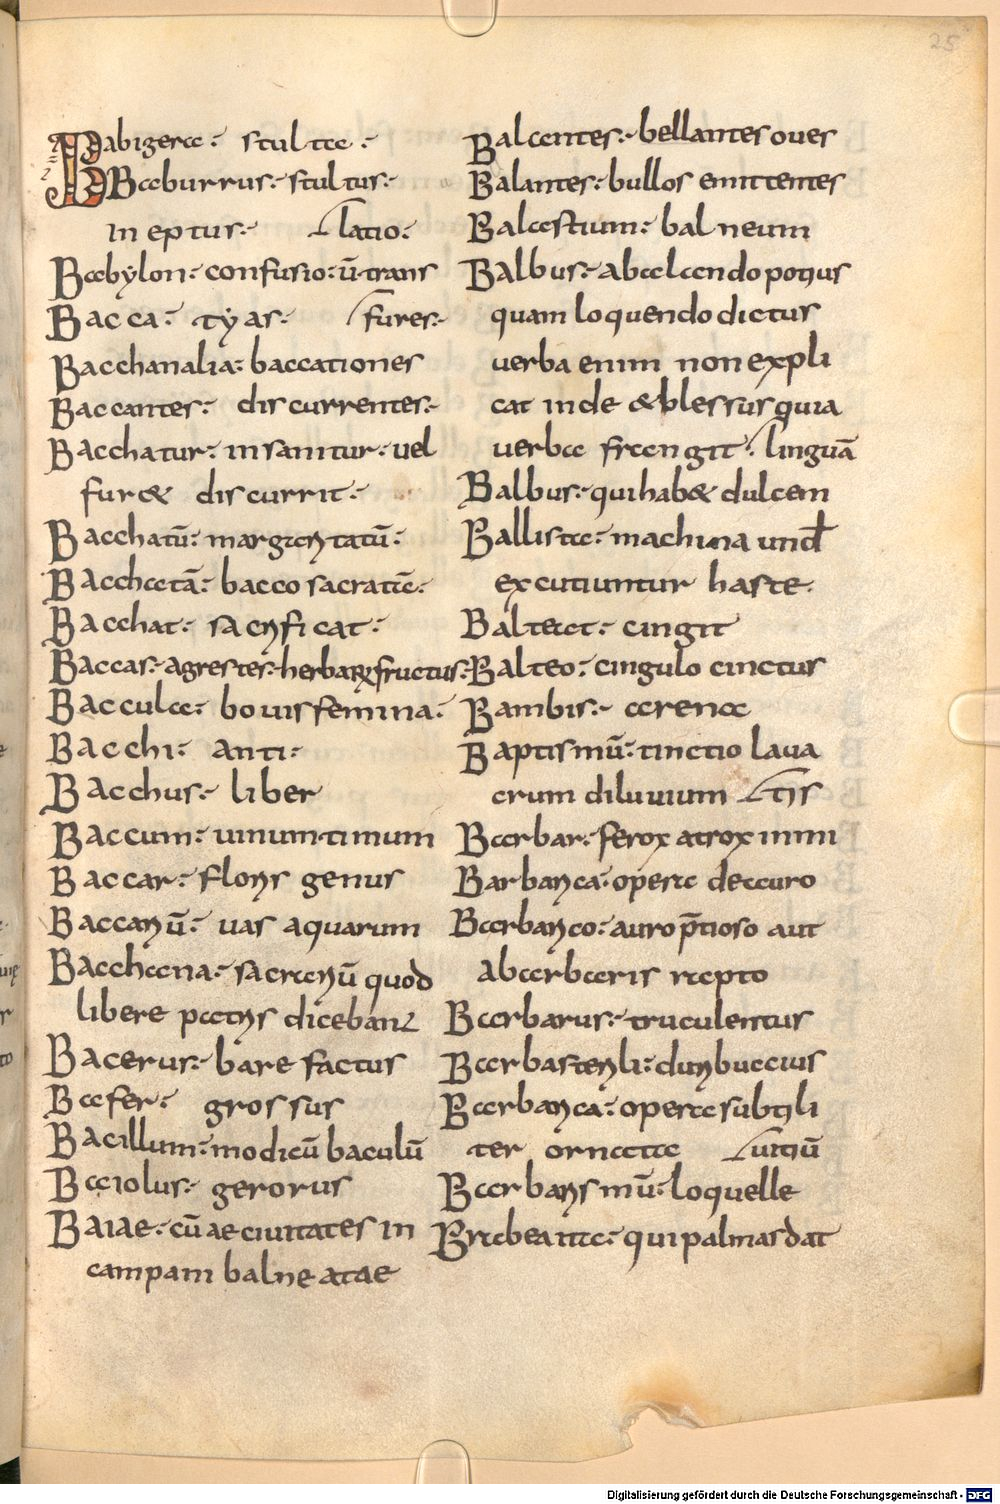 25
Babigere: stulte:
Baburrus: stultus:
in eptus: latio:
Babylon: confusio: ū trans
Bacca: tyas: fures:
Bacchanalia: baccationes
Baccantes: discurrentes:
Bacchatur: insanitur: uel
fur& discurrit:
Bacchatū: margaritatū:
Bacchatā: bacco sacratā:
Bacchat: sacrificat:
Baccas: agrestes: herbarum fructus:
Baccula: bouis femina:
Bacchi: anti:
Bacchus: liber
Baccum: uinum timum
Baccar: floris genus
Baccariū: uas aquarum
Bacchana: sacrariū quod
libere patris dicebant
Bacerus: bare factus
Bafer: grossus
Bacillum: modicū baculū
Baiolus: gerorus
Baiae: cū ae ciuitates in
campani balneatae
Balantes: bellantes oues
Balantes: bullos emittentes
Balastium: balneum
Balbus: abalando potius
quam loquendo dictus
uerba enim non expli
cat inde & blessus quia
uerba frangit: linguā
Balbus: qui hab& dulcem
Ballista: machina und
excutiuntur haste
Balteat: cingit
Balteo: cingulo cinctus
Bambis: arena
Baptismū: tinctio laua
crum diluuium tis
Barbar: ferox atrox inmi
Barbarica: opera deauro
Barbarico: auro p̄tioso aut
abarbaris rapto
Barbarus: truculentus
Barbasterili: duribuccius
Barbarica: opera subtili
ter ornata uitiū
Barbarismū: loquelle
Brabeanta: qui palmas dat
Digitalisierung gefördert durch die Deutsche Forschungsgemeinschaft - DFG